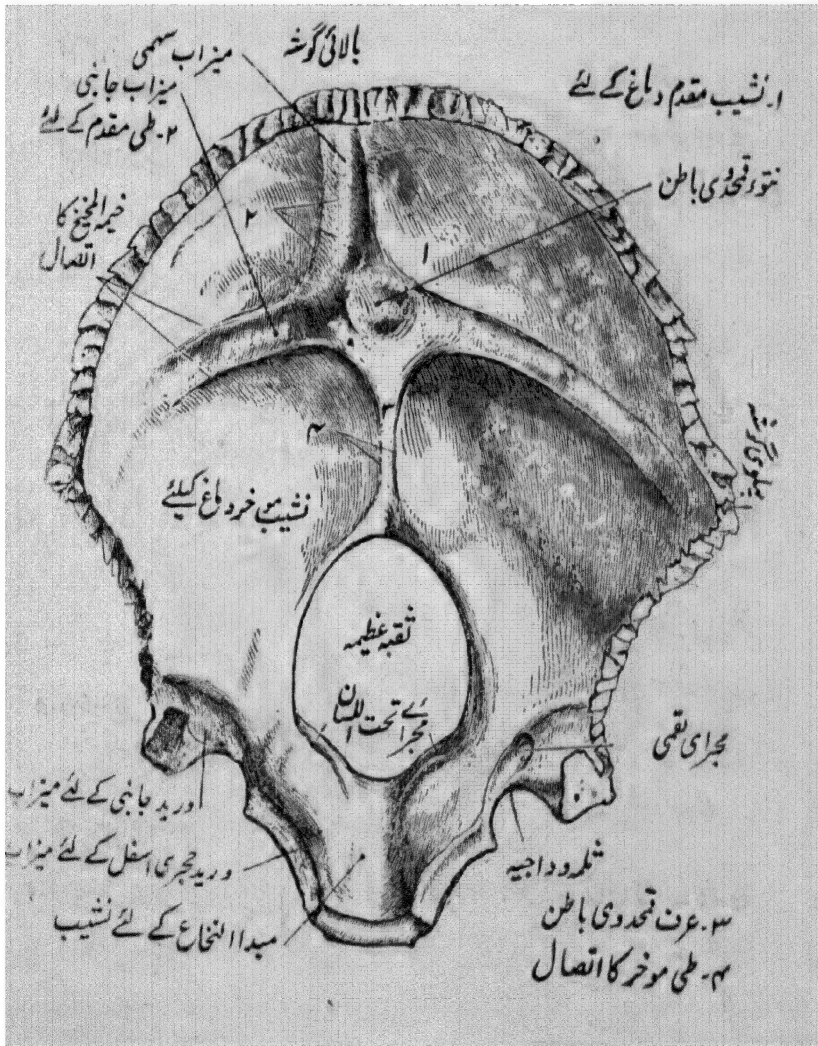 بالائی گوشہ
میزاب سہمی
میزاب جانبی
۲۔ طی مقدم کے لئے
۱۔ نشیب مقدم دماغ کے لئے
نتوء قمحدوی باطن
خیمۃ المخیخ کا
اتصال
۲
۱
۳
۴
پہلوی گوشہ
نشیب موخر دماغ کیلئے
ثقبہ عظیمہ
مجرائے تحت اللسان
مجرای لقمی
ورید جانبی کے لئے میزاب
ورید حجری اسفل کے لئے میزاب
مبدا النخاع کے لئے نشیب
ثلمہ وداجیہ
۳۔ عرف قمحدوی باطن
۴۔ طی موخر کا اتصال